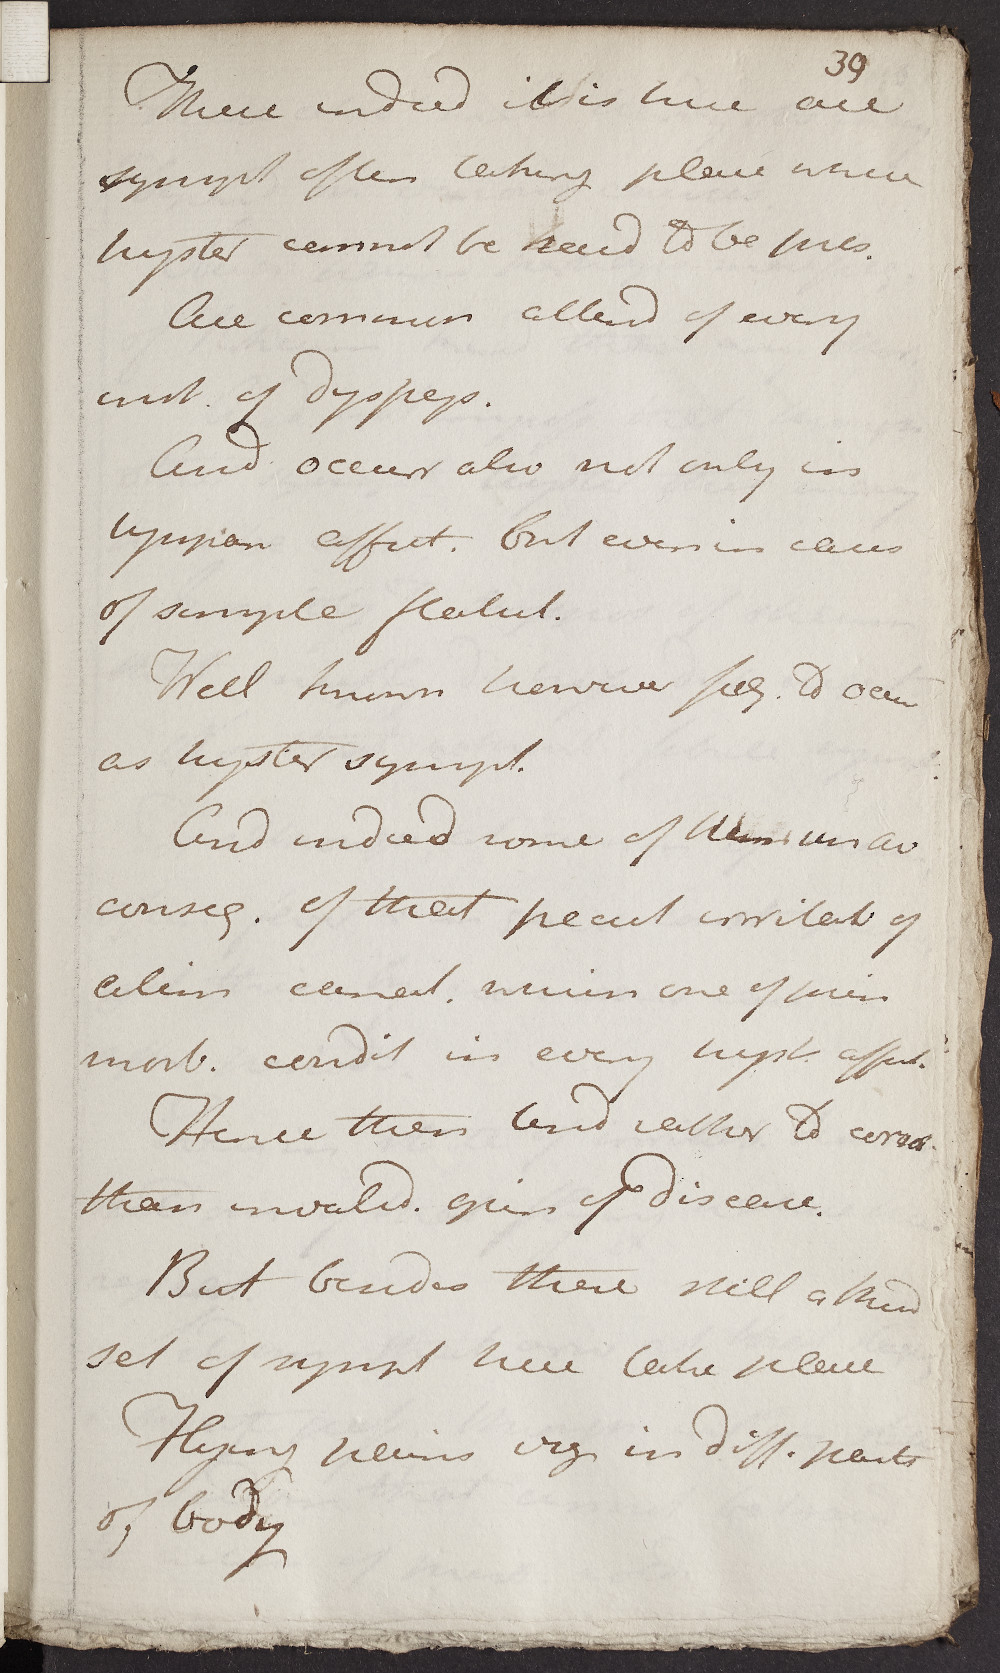 39
These indeed it is true are
sympt often taking place where
hyster cannot be said to be pres.
Are common attend of every
inst. of dyspeps.
And occur also not only in
hypoch affect. but even in cases
of simple flatul.
Well known however freq. to occur
as hyster sympt.
And indeed some of them un av
conseq. of that pecul irritab of
alim canal. which one of prin
morb. condit in every hyst. affect.
Hence then tend rather to corrob.
than invalid. opin of disease.
But besides these still a third
set of sympt here take place
Flying pains viz in diff. parts
of body